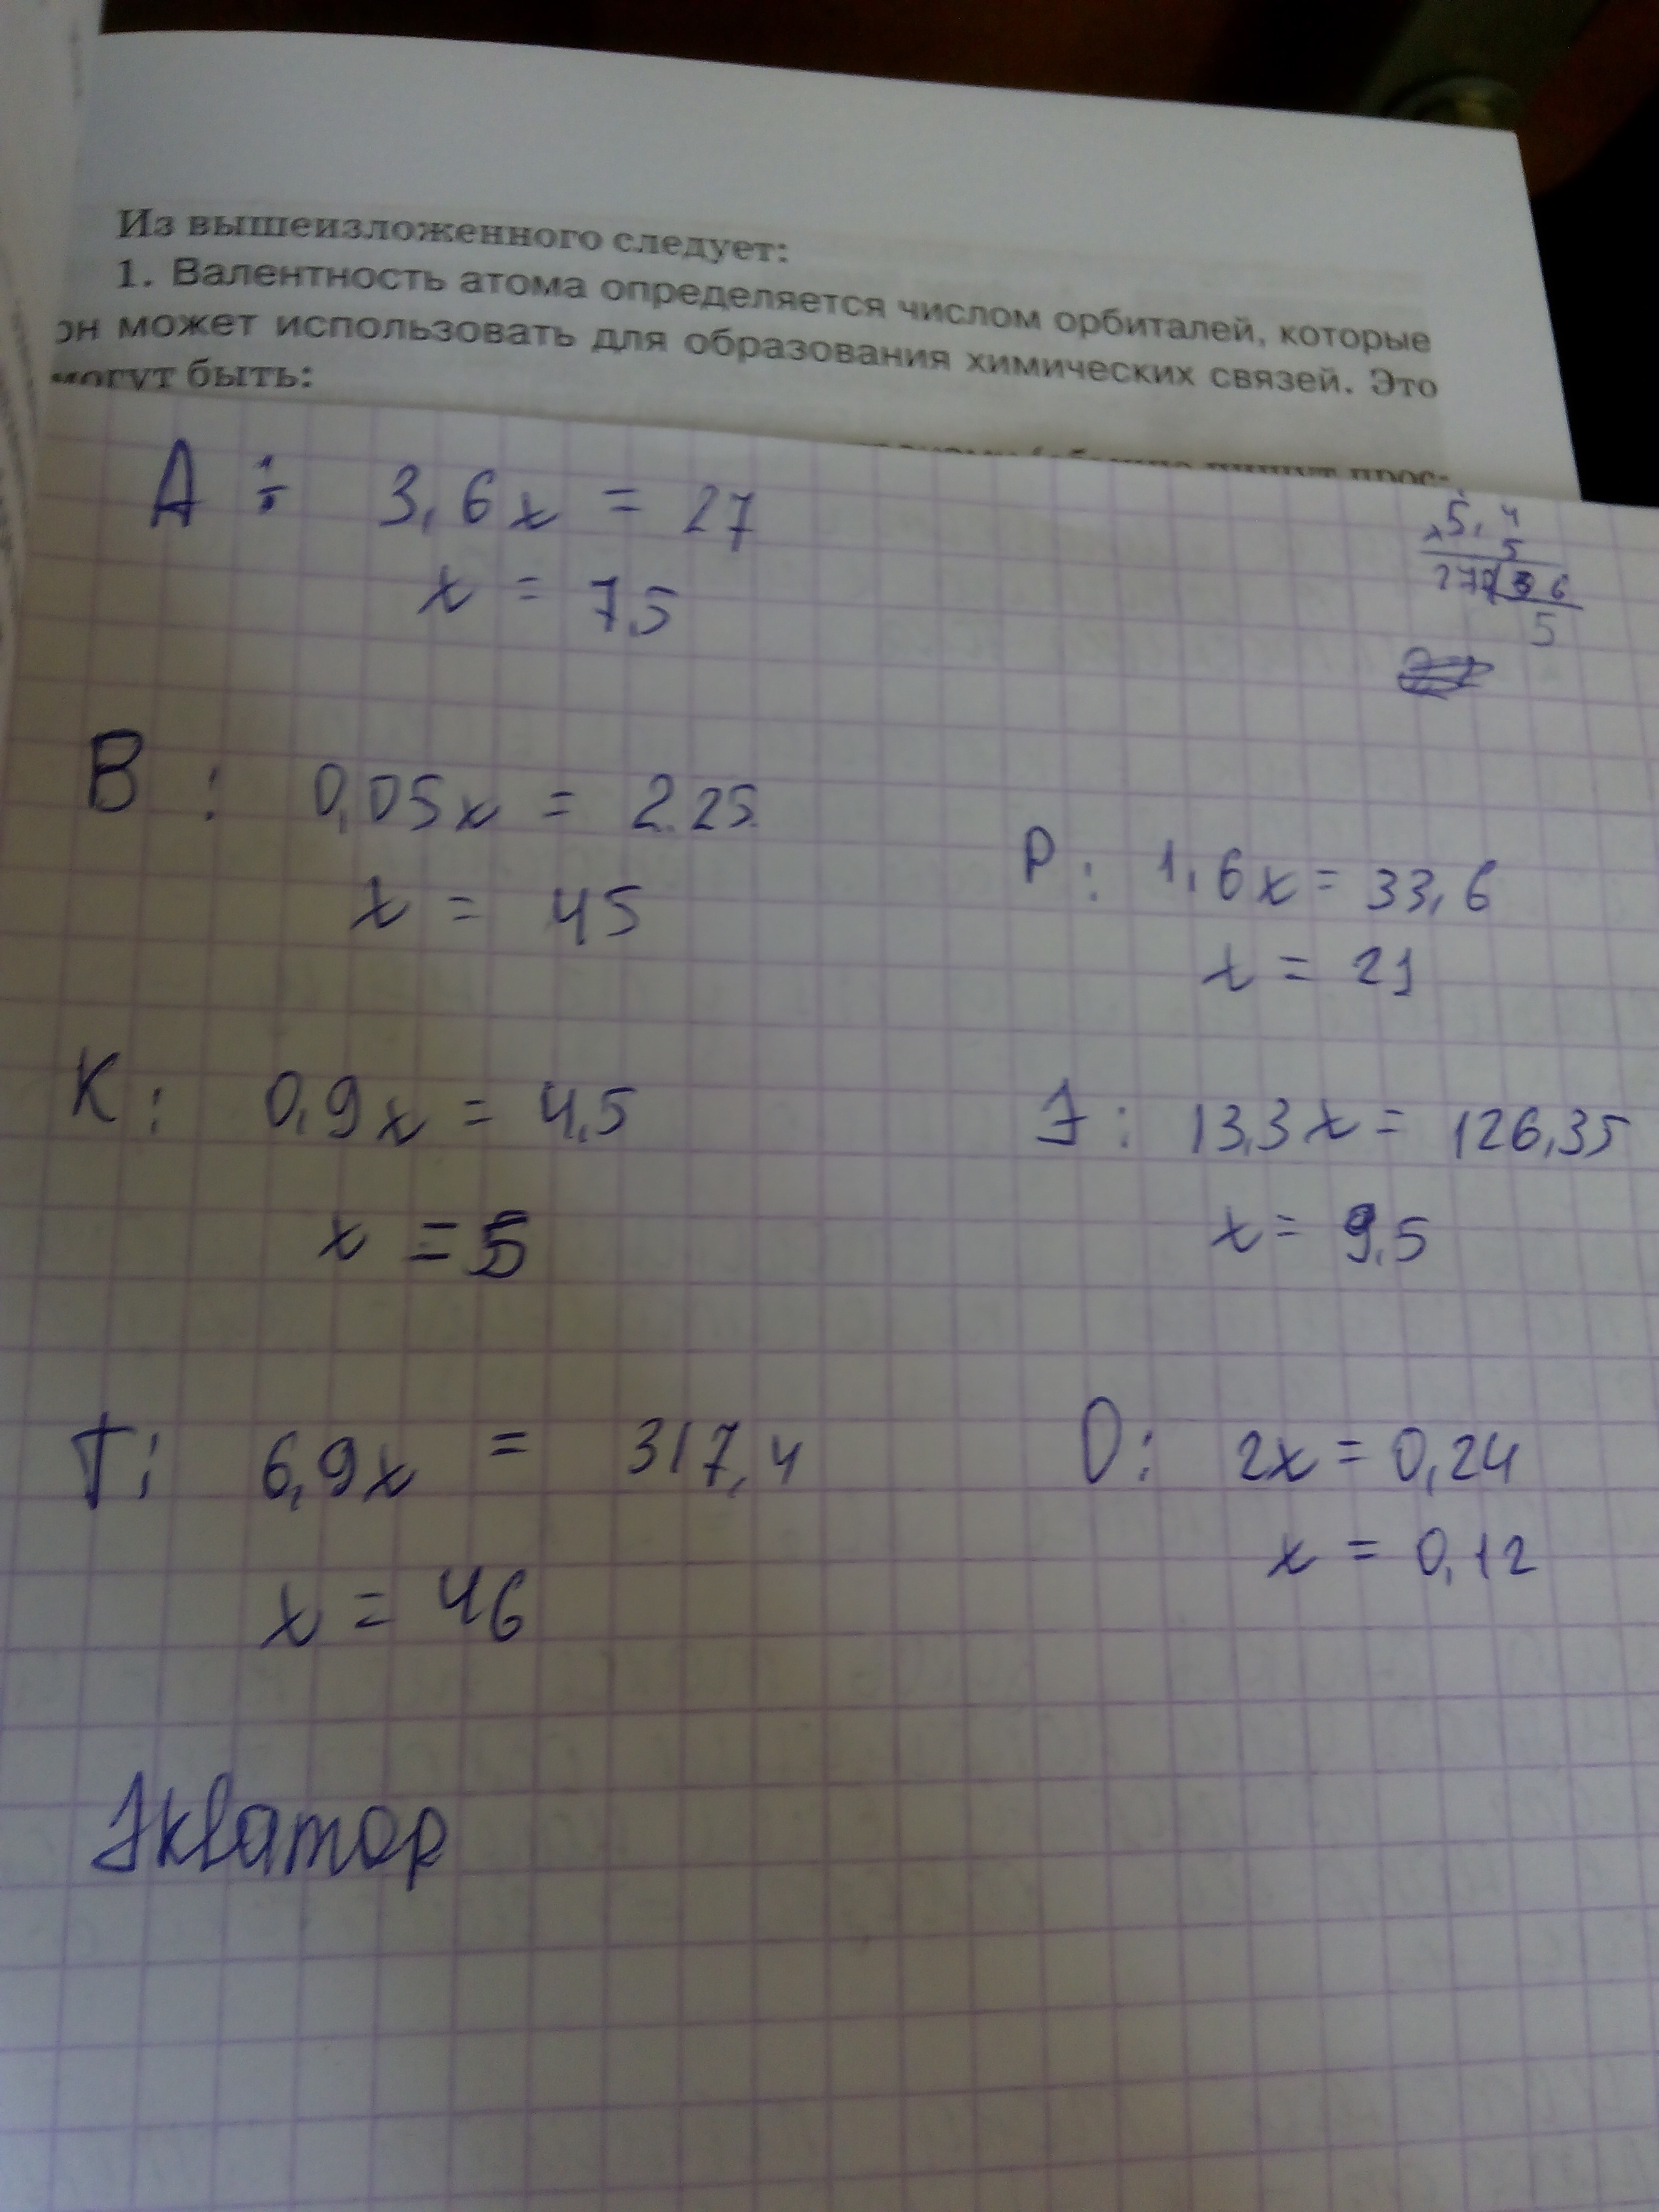 Из вышеизложенного следует:
1. Валентность атома определяется числом орбиталей, которые
он может использовать для образования химических связей. Это
могут быть:
А : 3,6x = 27
x = 7,5
5,4
5
270 36
5
В : 0,05x = 2.25
x = 45
Р : 1,6x = 33,6
x = 21
К : 0,9x = 4,5
x = 5
Э : 13,3x = 126,35
x = 9,5
Т : 6,9x = 317,4
x = 46
О : 2x = 0,24
x = 0,12
Экватор